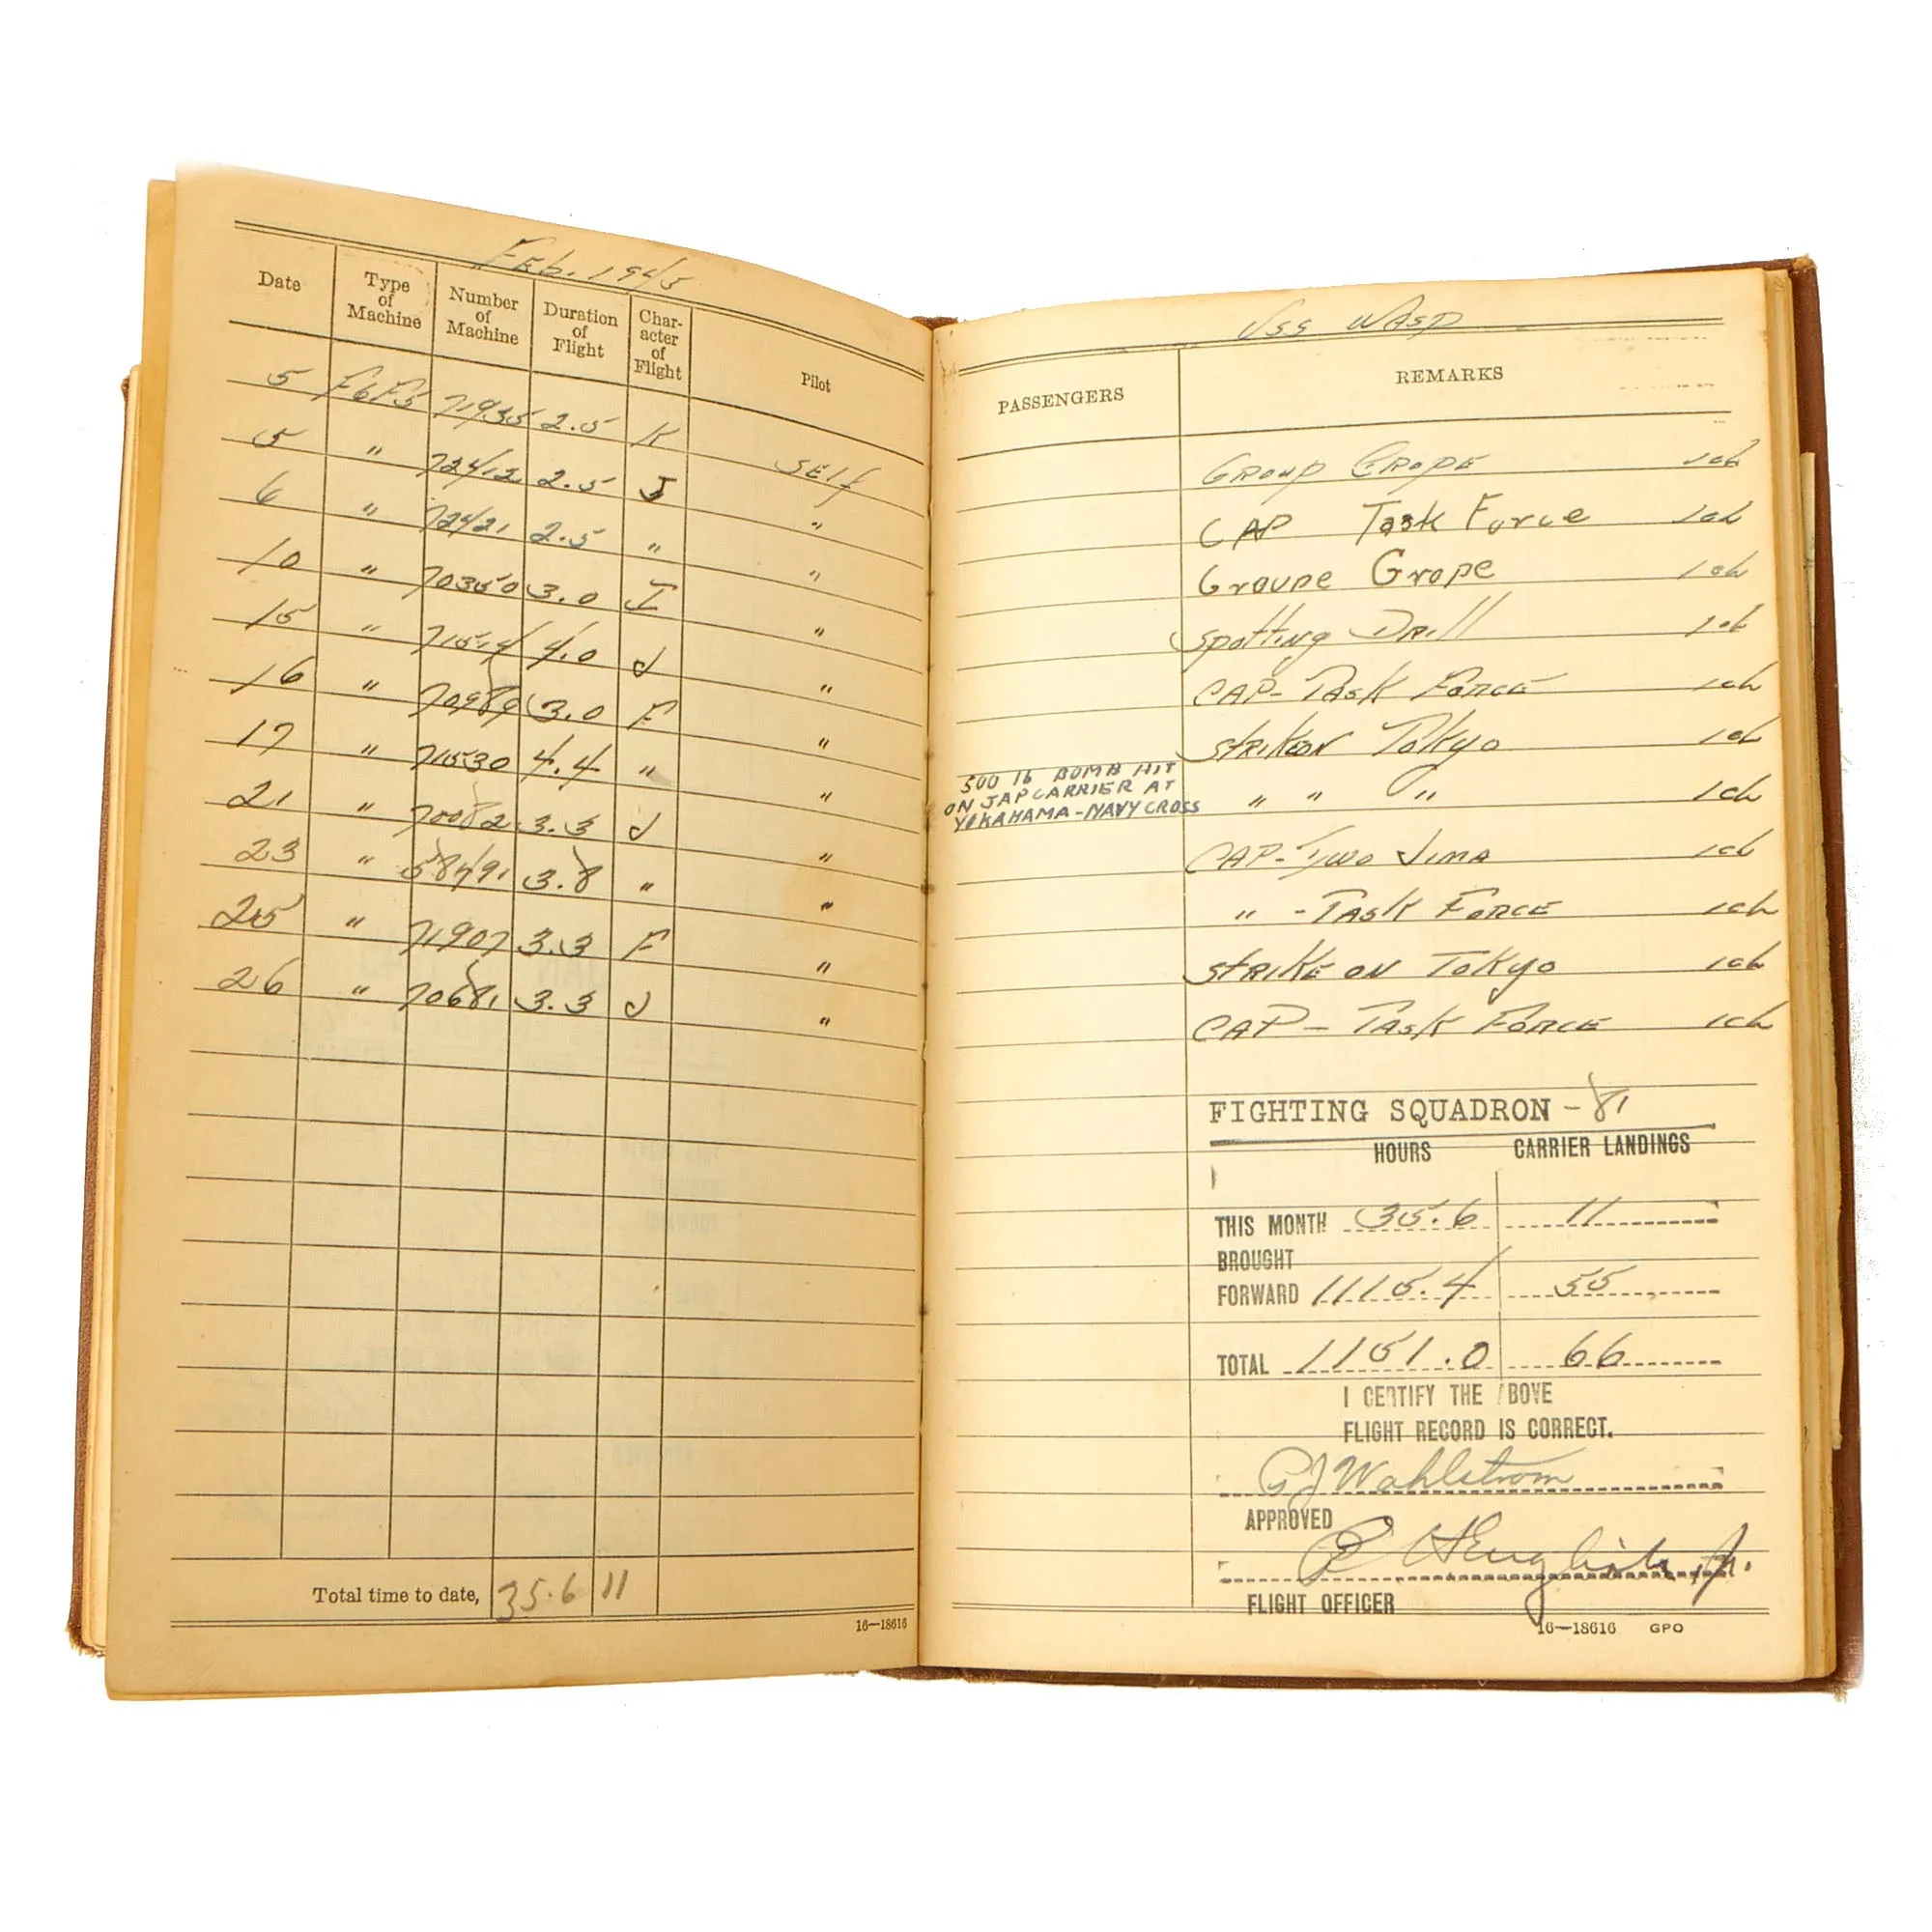 Feb. 1945
Date Type of Machine Number of Machine Duration of Flight Char- acter of Flight Pilot
5 F6F5 71935 2.5 K SELF
5 " 72412 2.5 J "
6 " 72421 2.5 " "
10 " 70350 3.0 I "
15 " 71514 4.0 J "
16 " 70989 3.0 F "
17 " 71530 4.4 " "
21 " 70082 3.3 J "
23 " 58491 3.8 " "
25 " 71907 3.3 F "
26 " 70681 3.3 J "
Total time to date, 35.6 11
16—18616
USS WASP
PASSENGERS REMARKS
GROUP GROPE 1cL
CAP Task Force 1cL
Groupe Grope 1cL
Spotting Drill 1cL
CAP-TASK FORCE 1cL
STRIKEON TOKyo 1cL
500 lb BOMB HIT
ON JAP CARRIER AT
YOKAHAMA-NAVY CROSS
" " " 1cL
CAP-Iwo Jima 1cL
" -TASK FORCE 1cL
STRIKE ON TOKYO 1cL
CAP - TASK FORCE 1cL
FIGHTING SQUADRON - 81
HOURS CARRIER LANDINGS
THIS MONTH 35.6 11
BROUGHT
FORWARD 1115.4 55
TOTAL 1151.0 66
I CERTIFY THE ABOVE
FLIGHT RECORD IS CORRECT.
GJ Wahlstrom
APPROVED
English, Jr.
FLIGHT OFFICER
16—18616 GPO